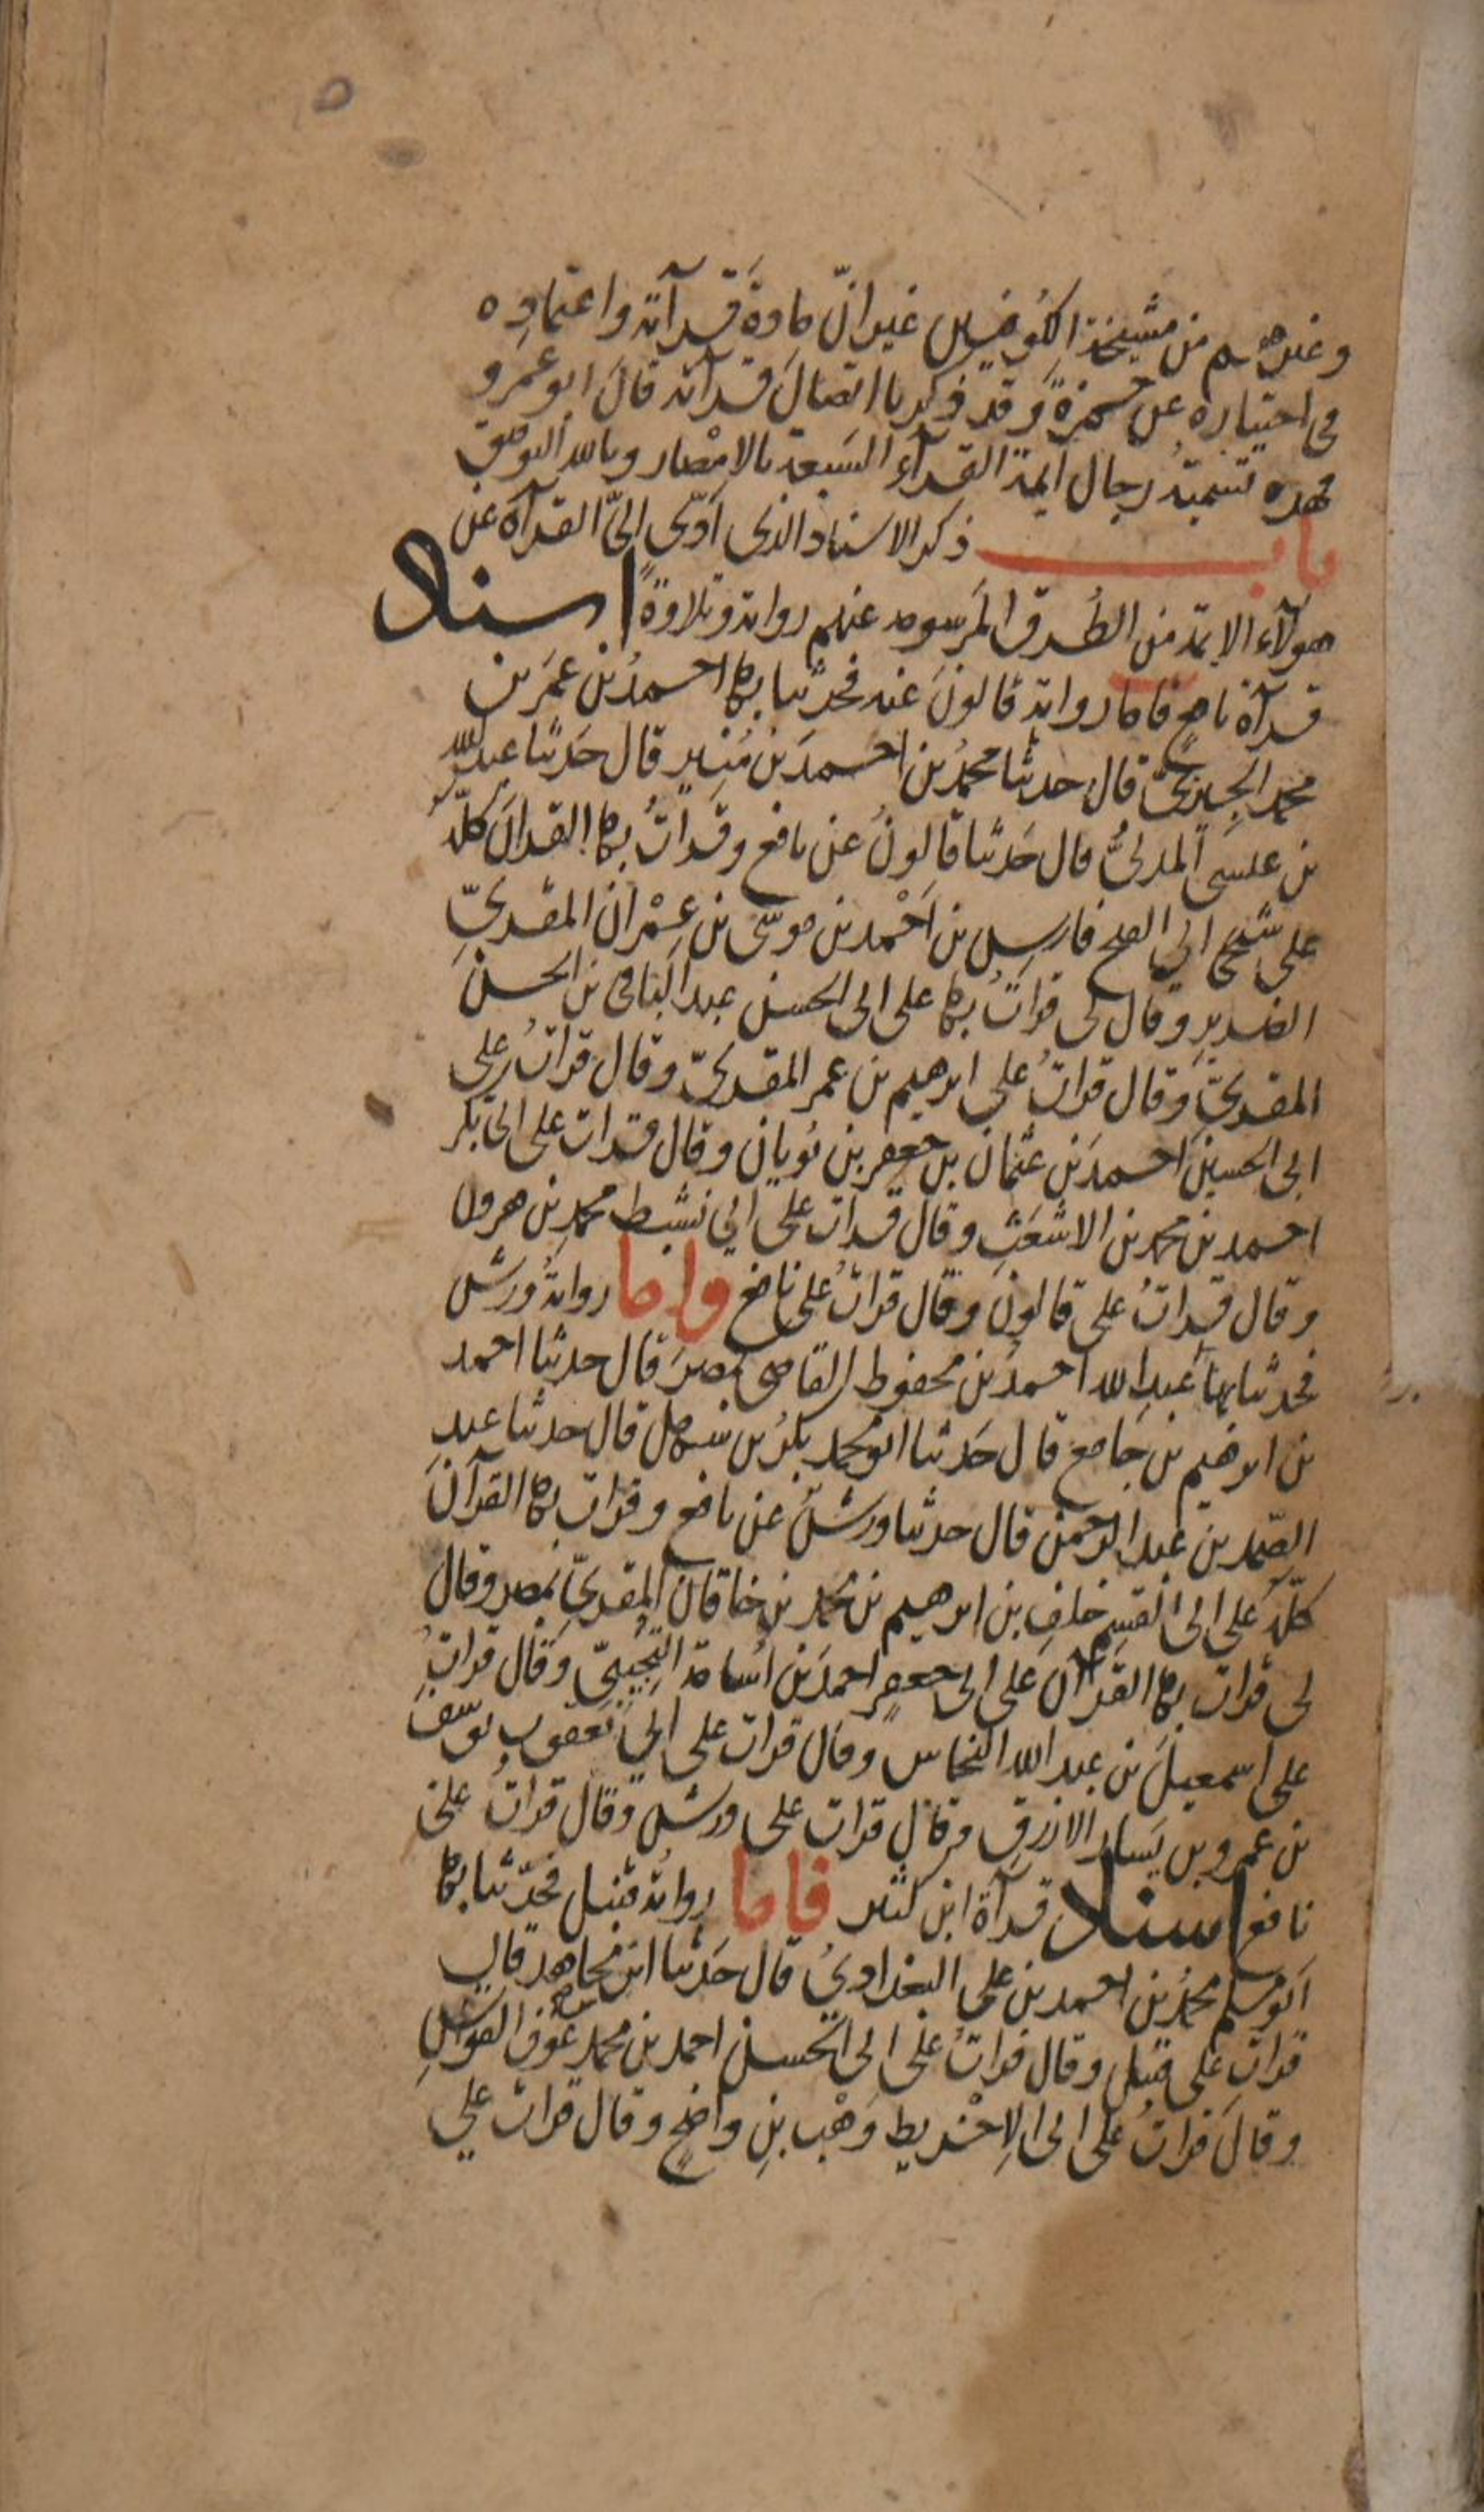 وغيرهم من مشيخة الكوفيين غير ان مادة قرآته واعتماده
في اختياره عن حمزة وقد ذكرنا اتصال قرآته قال ابو عمرو
فهذه تسمية رجال ايمة القرآء السبعة بالامصار وبالله التوفيق
باب ذكر الاسناد الذي ادّى اليّ القرآة عن
هولآء الايمة من الطرق المرسومه عنهم رواية وتلاوةً اسناد
قرآة نافع فاما رواية قالون عنه فحدثنا بها احمد بن عمر بن
محمد الجيزيّ قال حدثنا محمد بن احمد بن منير قال حدثنا عبد الله
بن عيسى المدنيُّ قال حدثنا قالون عن نافع وقرات بها القران كلّه
على شيخي ابي الفتح فارس بن احمد بن موسى بن عمران المقريّ
الضرير وقال لي قرات بها على ابي الحسن عبد الباقي بن الحسن
المقريّ وقال قرات على ابرهيم بن عمر المقريّ وقال قرات على
ابي الحسين احمد بن عثمان بن جعفر بن بويان وقال قرات على ابي بكر
احمد بن محمد بن الاشعث وقال قرات على ابي نشيط محمد بن هرون
وقال قرات على قالون وقال قرات على نافع واما رواية ورش
فحدثنا بها عبد الله احمد بن محفوظ القاضي بمصر قال حدثنا احمد
بن ابرهيم بن جامع قال حدثنا ابو محمد بكر بن سهل قال حدثنا عبد
الصمد بن عبد الرحمن قال حدثنا ورش عن نافع وقرات بها القرآن
كلّه على ابي القسم خلف بن ابرهيم بن محمد بن خاقان المقريّ بمصر وقال
لي قرات بها القرآن على ابي جعفر احمد بن اسامة التجيبيّ وقال قرات
على اسمعيل بن عبد الله النحاس وقال قرات على ابي يعقوب يوسف
بن عمرو بن يسار الازرق وقال قرات على ورش وقال قرات على
نافع اسناد قرآة ابن كثير فاما رواية قنبل فحدثنا بها
ابو مسلم محمد بن احمد بن علي البغدادي قال حدثنا ابن مجاهد قال
قرات على قنبل وقال قرات على ابي الحسن احمد بن محمد عون القواس
وقال قرات على ابي الاخريط وهب بن واضح وقال قرات على